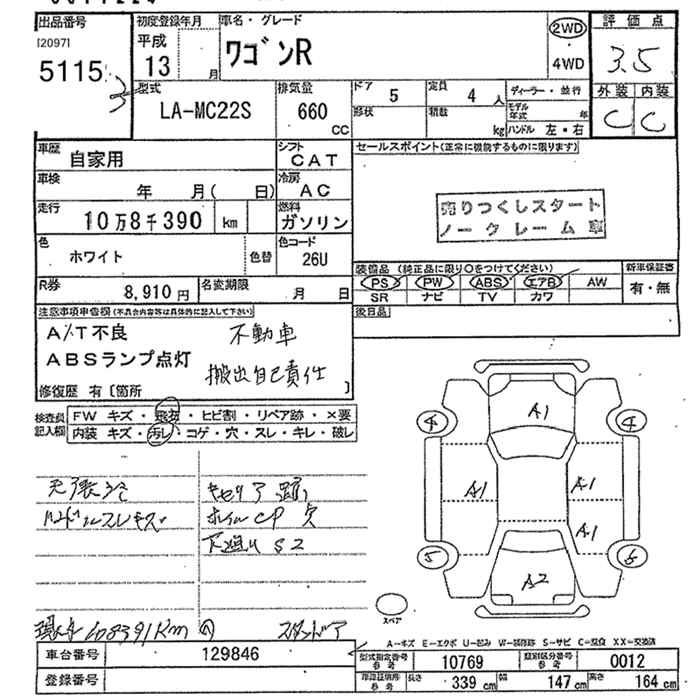 出品番号 初度登録年月 車名・グレード 2WD 評価点
[2097] 平成 ワゴンR 3.5
5115 13 月 4WD 外装 内装
型式 排気量 ドア 5 定員 4人 ディーラー・並行 C C
LA-MC22S 660 形状 積載 モデル年式 年
CC kg ハンドル 左・右
車歴 自家用 シフト CAT セールスポイント(正常に機能するものに限ります)
車検 年 月( 日) 冷房 AC
走行 10万8千390 km 燃料 ガソリン
売りつくしスタート
ノークレーム車
色 ホワイト 色替 色コード 26U
装備品 (純正品に限り○をつけてください) 新車保証書
R券 8,910円 名変期限 月 日 PS PW ABS エアB AW 有・無
SR ナビ TV カワ
注意事項申告欄(不具合内容等は具体的に記入して下さい) 後日品
A/T不良 不動車
ABSランプ点灯
搬出自己責任
修復歴 有〔箇所 〕
検査員記入欄 FW キズ・飛石・ヒビ割・リペア跡・×要
内装 キズ・汚レ・コゲ・穴・スレ・キレ・破レ
A1
4 4
A1 A1
A1
5 6
A2
ハンドルスレキズ ホイルCP欠
下廻りS2
スペア
A=キズ E=エクボ U=凹み W=補修跡 S=サビ C=腐食 XX=交換済
車台番号 129846 型式指定番号 参考 10769 類別区分番号 参考 0012
登録番号 車検証信用 参考 長さ 339cm 幅 147cm 高さ 164cm